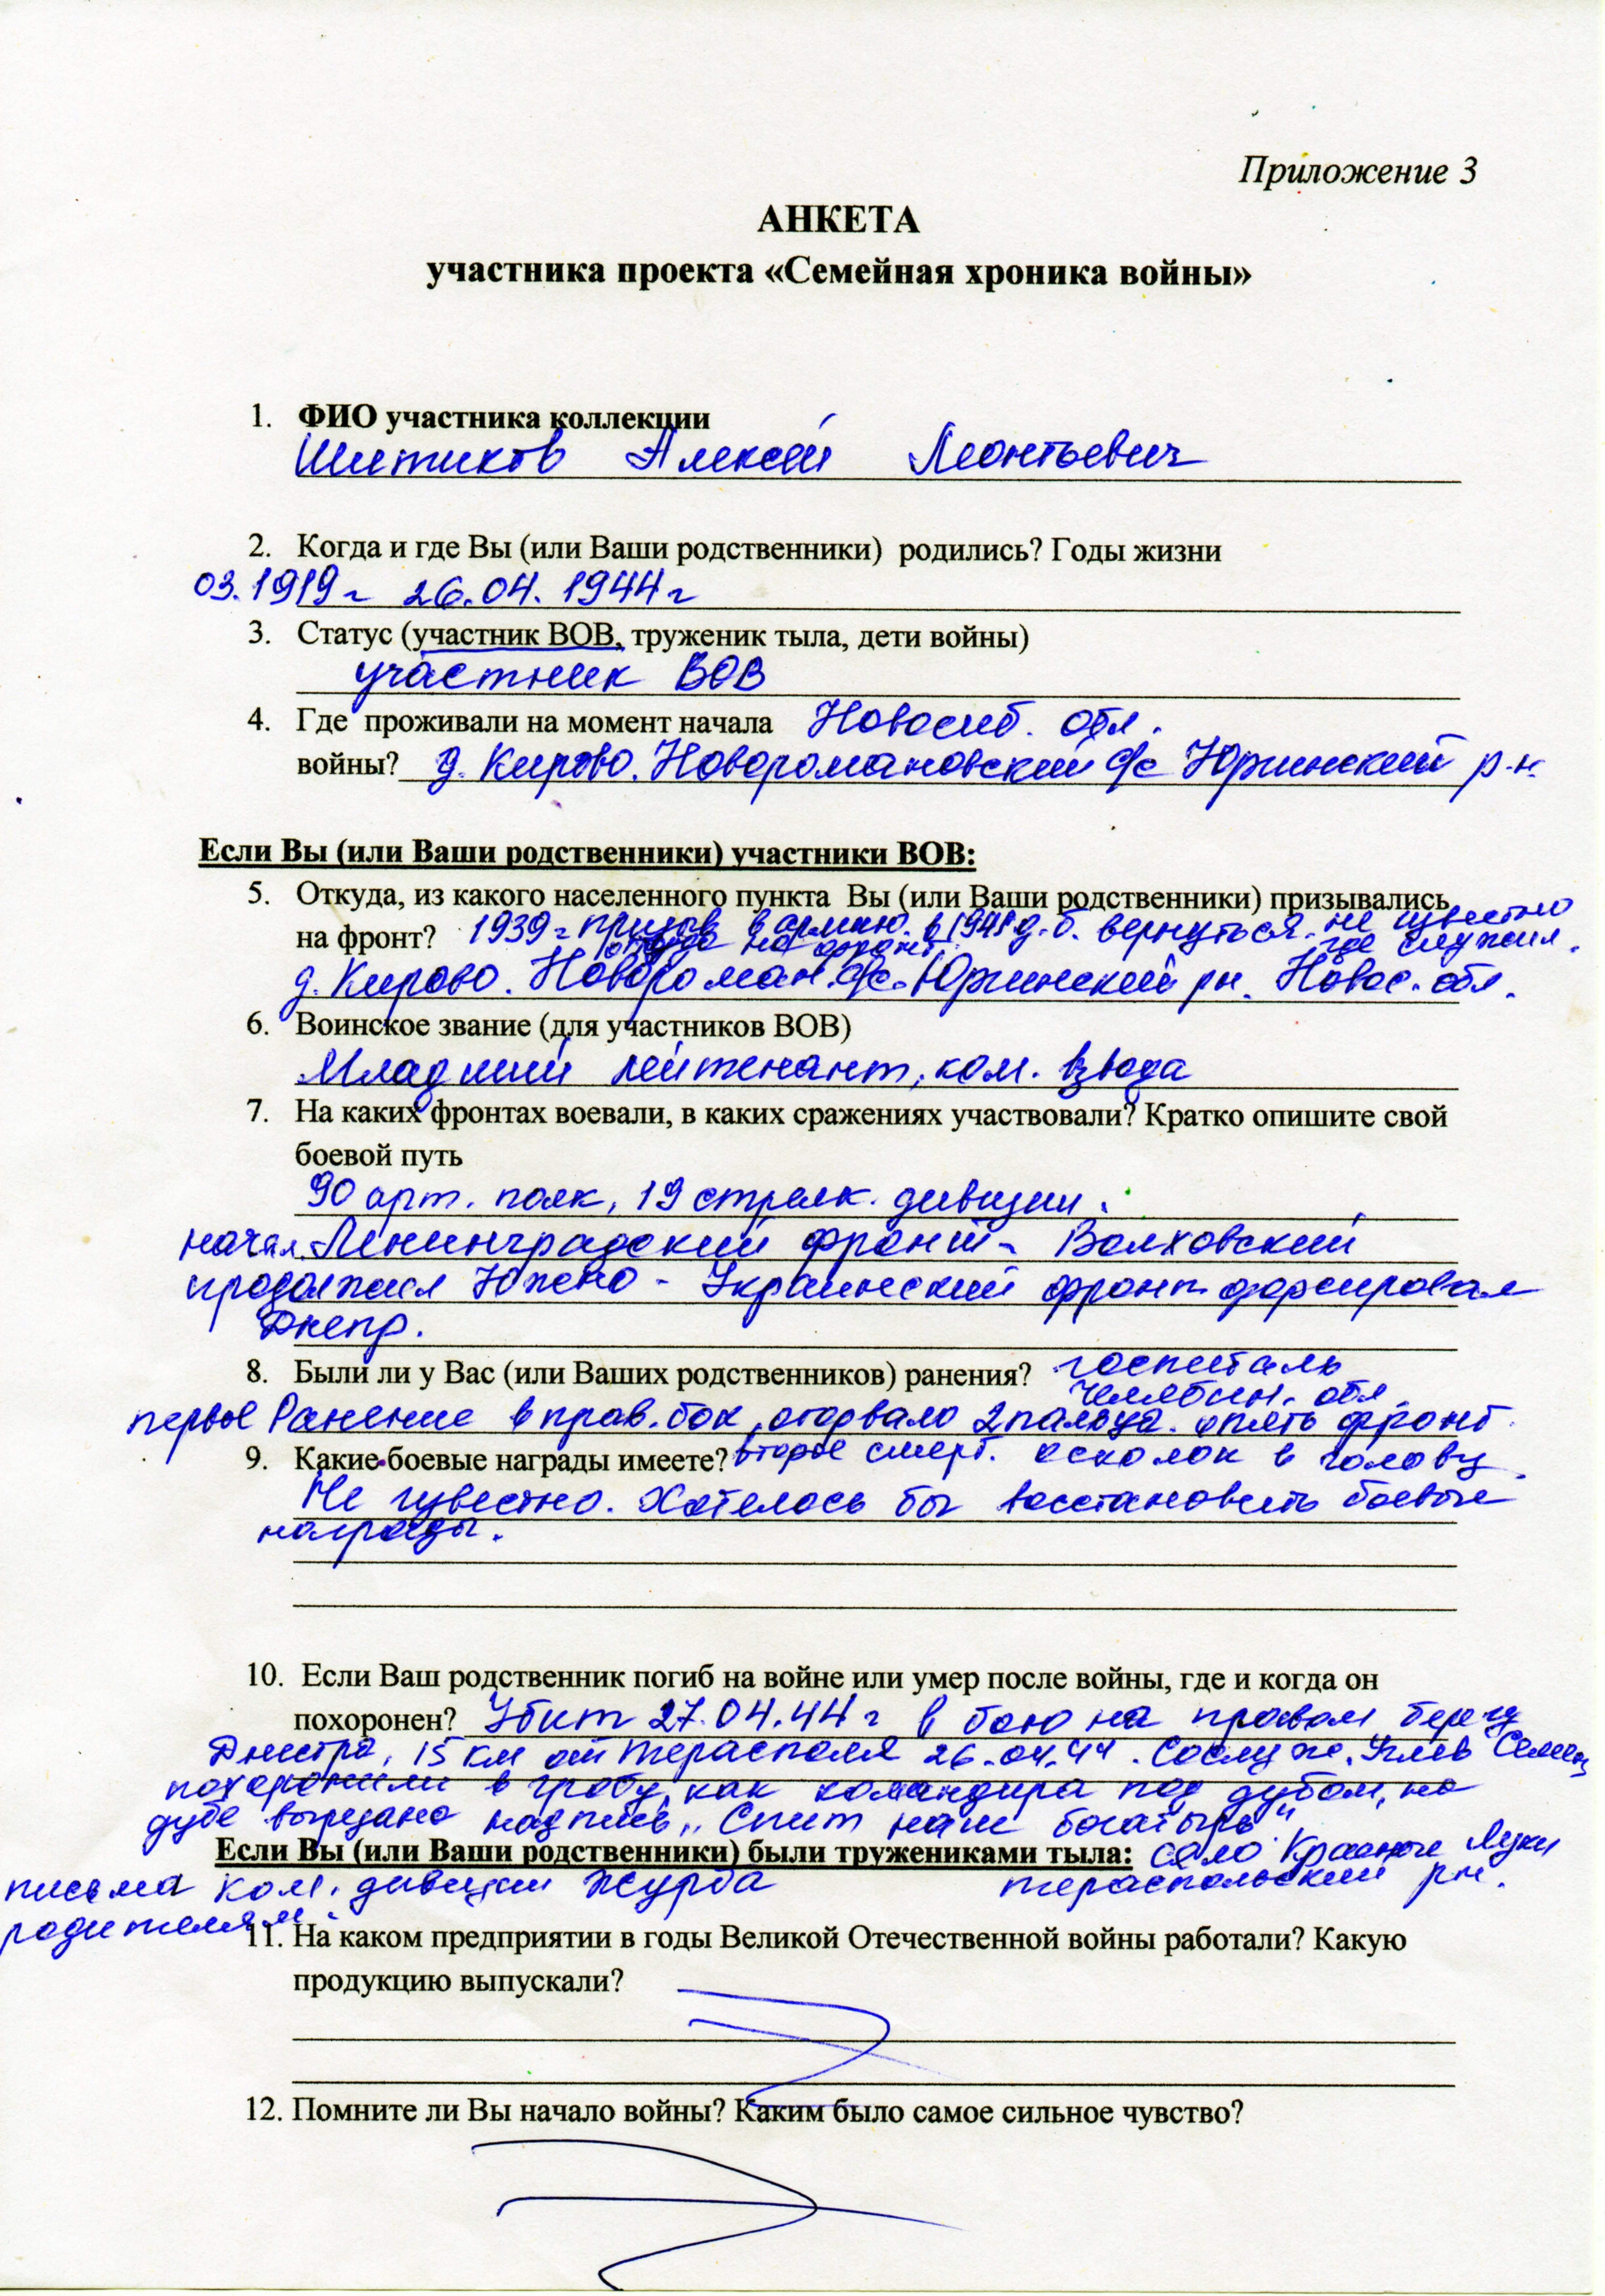 Приложение 3
АНКЕТА
участника проекта «Семейная хроника войны»
1. ФИО участника коллекции
Шитиков Алексей Леонтьевич
2. Когда и где Вы (или Ваши родственники) родились? Годы жизни
03.1919г 26.04.1944г
3. Статус (участник ВОВ, труженик тыла, дети войны)
участник ВОВ
4. Где проживали на момент начала Новосиб. обл.
войны? д. Кирово. Новоромановский с/с Юргинский р-н.
Если Вы (или Ваши родственники) участники ВОВ:
5. Откуда, из какого населенного пункта Вы (или Ваши родственники) призывались
на фронт? 1939г призов в армию. в 1941 д.б. вернуться. не известно
на фронт. где служил.
д. Кирово. Новороман. с/с. Юргинский рн. Новос. обл.
6. Воинское звание (для участников ВОВ)
Младший лейтенант, ком. взвода
7. На каких фронтах воевали, в каких сражениях участвовали? Кратко опишите свой
боевой путь
90 арт. полк, 19 стрелк. дивизии.
начал Ленинградский фронт - Волховский
продолжил Южно - Украинский фронт форсировал
Днепр.
8. Были ли у Вас (или Ваших родственников) ранения? госпиталь
Челябин. обл.
первое Ранение в прав. бок, оторвало 2 пальца. опять фронт.
9. Какие боевые награды имеете? второе смерт. осколок в голову.
Не известно. Хотелось бы восстановить боевые
награды.
10. Если Ваш родственник погиб на войне или умер после войны, где и когда он
похоронен? Убит 27.04.44г в бою на правом берегу
Днестра, 15 км от Терасполя 26.04.44. Сослуж.
похоронили в гробу, как командира под дубом, на
дубе вырезано надпись „Спит наш богатырь"
Если Вы (или Ваши родственники) были тружениками тыла: село Красные Луки
письма ком. дивизии Журба тераспольский рн.
родителям.
11. На каком предприятии в годы Великой Отечественной войны работали? Какую
продукцию выпускали?
12. Помните ли Вы начало войны? Каким было самое сильное чувство?